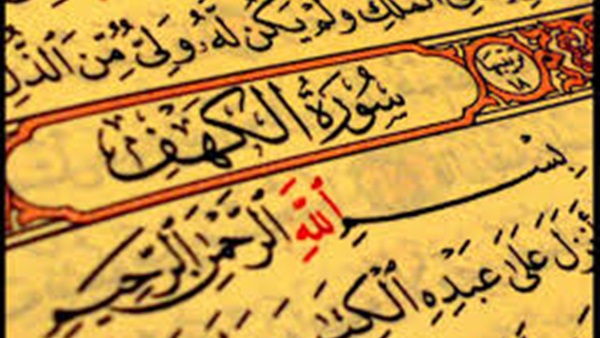 ٱلْمُلْكِ وَلَمْ يَكُن لَّهُۥ وَلِىٌّ مِّنَ ٱلذُّلِّ
سُورَةُ الكَهْفِ
١٨
بِسْمِ ٱللَّهِ ٱلرَّحْمَٰنِ ٱلرَّحِيمِ
أَنزَلَ عَلَىٰ عَبْدِهِ ٱلْكِتَـ